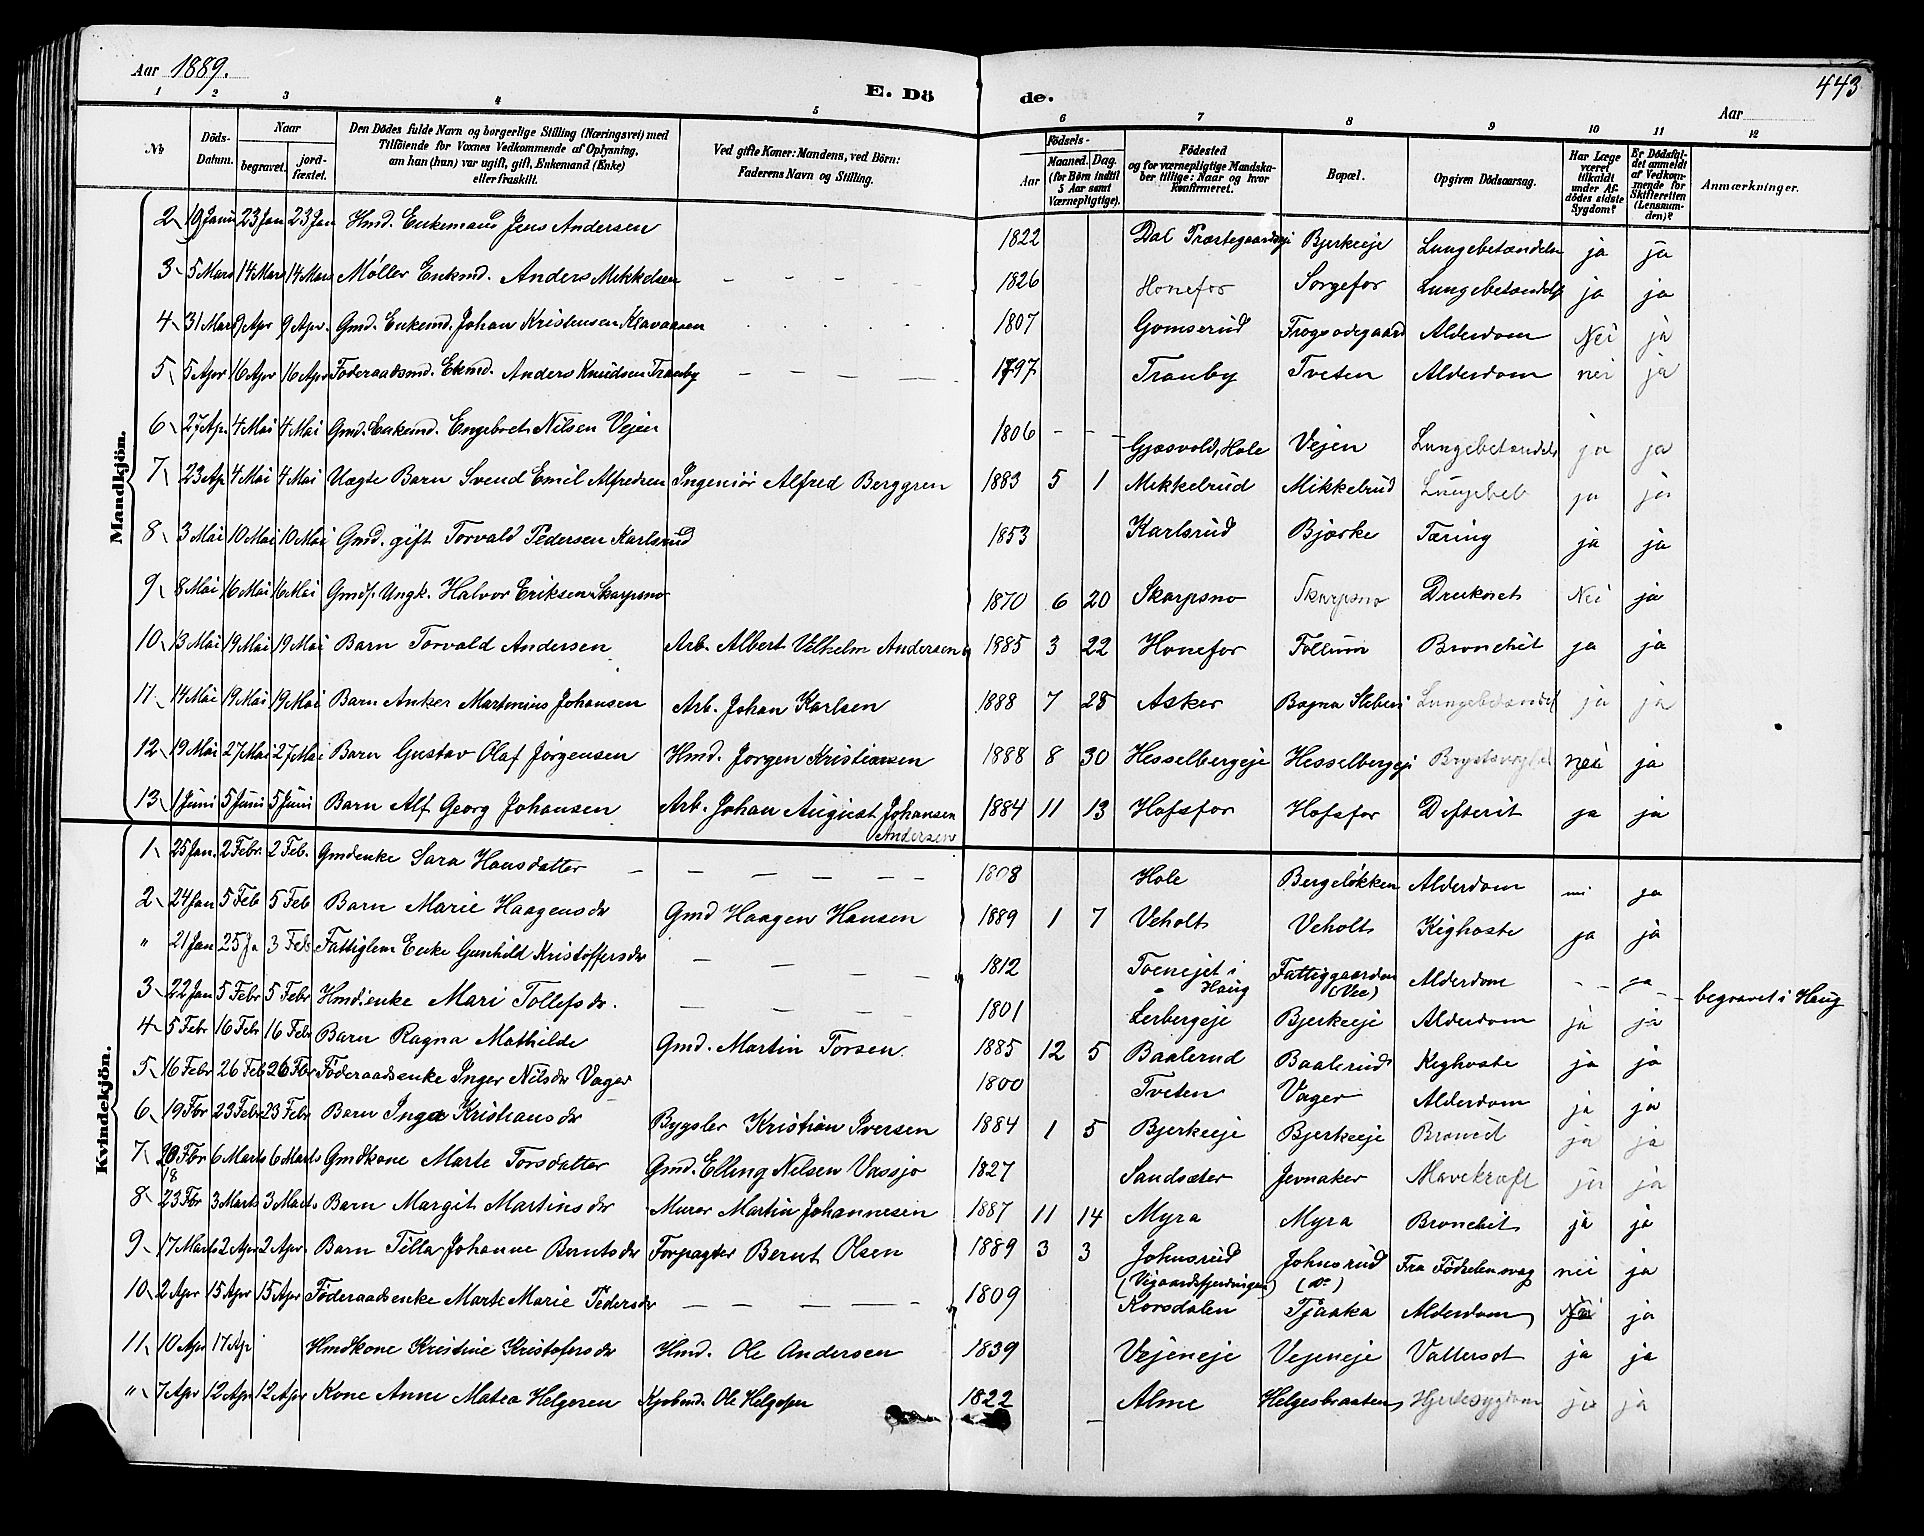 Aar 1889.
E. Dö de.
Aar
443
1 2 3 4 5 6 7 8 9 10 11 12
No
Döds-Datum.
Naar
begravet.
jord-fæstet.
Den Dödes fulde Navn og borgerlige Stilling (Næringsvei) med
Tilföiende for Voxnes Vedkommende af Oplysning,
om han (hun) var ugift, gift, Enkemand (Enke)
eller fraskilt.
Ved gifte Koner: Mandens, ved Börn:
Faderens Navn og Stilling.
Födsels-
Aar
Maaned. Dag.
(for Börn indtil 5 Aar samt Værnepligtige).
Födested
og for værnepligtige Mandska-
ber tillige: Naar og hvor
Konfirmeret.
Bopæl.
Opgiven Dödsaarsag.
Har Læge været tilkaldt under Afdödes sidste Sygdom?
Er Dödsfaldet anmeldt af Vedkommende for Skifteretten (Lensmanden)?
Anmærkninger.
Mandkjön.
2 19 Janu 23 Jan 23 Jan Hmd. Enkemand Jens Andersen 1822 Dal Præstegaardseje Bjerkeeje Lungebetændelse ja ja
3 5 Mars 14 Mars 14 Mars Møller Enkmd. Anders Mikkelsen – – – – 1826 Honefos Sorgefos Lungebetændels ja ja
4 31 Mars 9 Apr 9 Apr. Gmd. Enkemd. Johan Kristensen Klavaasen 1807 Gomserud Frogsodegaard Alderdom Nei ja
5 5 Apr 16 Apr 16 Apr Föderaadsmd. Ekmd. Anders Knudsen Tranby – – – – 1797 Tranby Tveten Alderdom nei ja
6 27 Ap. 4 Mai 4 Mai Gmd. Enkemd. Engebret Nilsen Vejen 1806 – – – Gjæsvold, Hole Vejen Lungebetændels ja ja
7 23 Ap 4 Mai 4 Mai Uægte Barn Svend Emil Alfredsen Ingeniör Alfred Berggren 1883 5 1 Mikkelrud Mikkelrud Lungebet ja ja
8 3 Mai 10 Mai 10 Mai Gmd. gift Torvald Pedersen Karlsrud 1853 Karlsrud Bjørke Tæring ja ja
9 8 Mai 16 Mai 16 Mai Gmds. Ungk. Halvor Eriksen Skarpsno 1870 6 20 Skarpsno Skarpsno Druknet Nei ja
10 13 Mai 19 Mai 19 Mai Barn Torvald Andersen Arb. Albert Vilhelm Andersen 1885 3 22 Honefos Follum Bronchit ja ja
11 14 Mai 19 Mai 19 Mai Barn Anker Martinius Johansen Arb. Johan Karlsen 1888 7 28 Asker Bagna Lungebetændel ja ja
12 19 Mai 27 Mai 27 Mai Barn Gustav Olaf Jörgensen Hmd. Jorgen Kristiansen 1888 8 30 Hesselbergeje Hesselbergeje nei ja
13 1 Juni 5 Juni 5 Juni Barn Alf Georg Johansen Arb. Johan August Johansen Andersen 1884 11 13 Hofsfos Hofsfos Difterit ja ja
Kvindekjön.
1 25 Jan. 2 Febr. 2 Feb. Gmdenke Sara Hansdatter – – – – – – 1808 Hole Bergeløkken Alderdom ja
2 24 Jan 5 Feb 5 Feb Barn Marie Haagensdr Gmd Haagen Hansen 1889 1 7 Veholt Veholt Kighoste ja ja
" 21 Jan 25 Ja 3 Feb Fattiglem Enke Gunhild Kristoffersdr – – – – 1812 i Haug Fattiggaarden (Vee) Alderdom – – ja – – begravet i Haug
3 22 Jan 5 Febr 5 Febr Hmdienke Mari Tollefsdr. – – – – 1801 Lerbergeje Bjerkeeje Alderdom ja ja
4 5 Febr 16 Febr 16 Febr Barn Ragna Mathilde Gmd. Martin Torsen. 1885 12 5 Baalerud Baalerud Kighoste ja ja
5 16 Febr 26 Feb 26 Fbr Föderaadsenke Inger Nilsdr Vager 1800 Tveten Vager Alderdom ja ja
6 19 Fbr 23 Febr 23 Febr Barn Inga Kristiansdr Bygsler Kristian Iversen 1884 1 5 Bjerkeeje Bjerkeeje ja ja
7 28 Fbr 6 Marts 6 Marts Gmdkone Marte Torsdatter Gmd. Elling Nilsen Vassjo 1827 Sandsæter Jevnaker Mavekræft ja ja
8 23 Fbr 3 Marts 3 Marts Barn Margit Martinsdr Murer Martin Johannesen 1887 11 14 Myra Myra Bronchit ja ja
9 17 Marts 2 Apr 2 Apr. Barn Tilla Johanne Berntsdr Forpagter Bernt Olsen 1889 3 3 Johnsrud (Vegaardsfjerdingen) Johnsrud (do) Fra Födselen svag nei ja
10 2 Apr 15 Apr 15 Apr Föderaadsenke Marte Marie Pedersdr – – – – – 1809 Korsdalen Tjaaka Alderdom ja
11 10 Apr 17 Ap Hmdkone Kristine Kristofersdr Hmd. Ole Andersen 1839 Vejeneje Vejeneje Vattersot ja ja
" 7 Apr 12 Apr 12 Apr Kone Anne Matea Helgesen Kjøbmd. Ole Helgesen 1822 – Alme Helgesbraaten Hjertesygdom ja ja